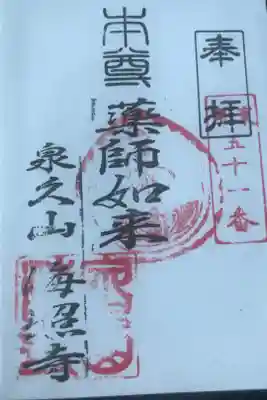 奉拝
五十一番
本尊
薬師如来
泉久山
海照寺